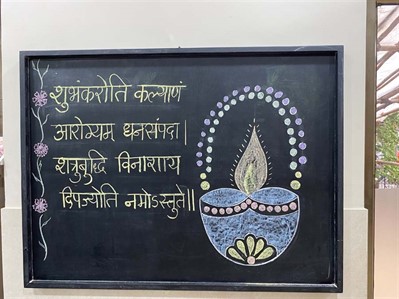 शुभंकरोति कल्याणं
आरोग्यम् धनसंपदा।
शत्रुबुद्धि विनाशाय
दिपज्योति नमोऽस्तुते॥